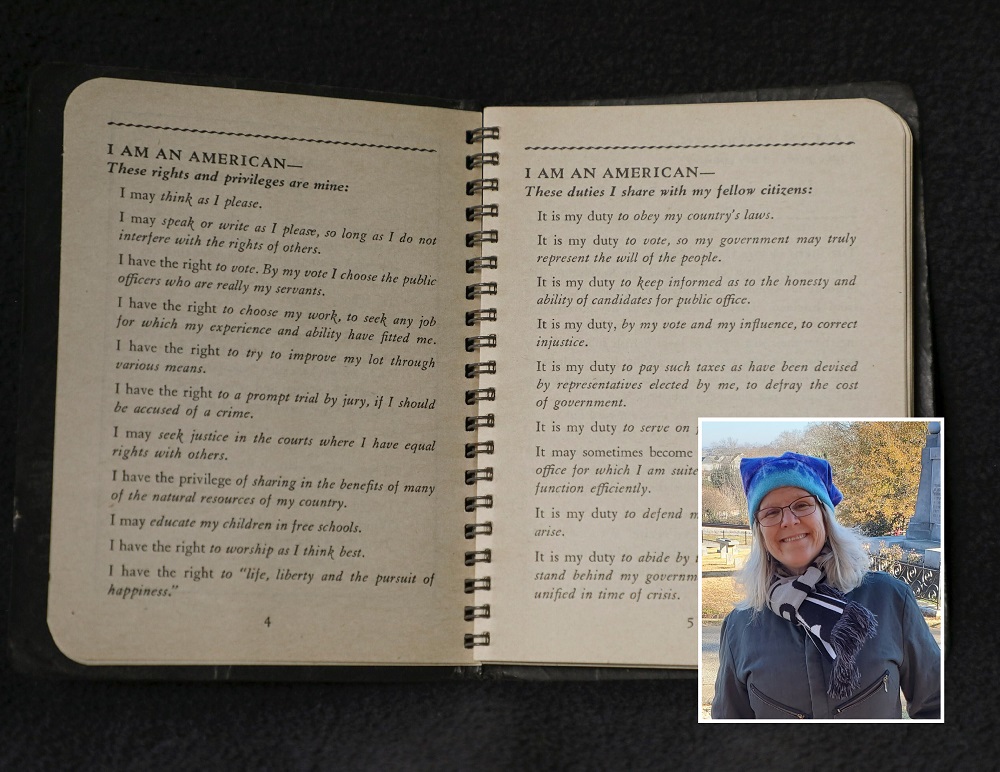 I AM AN AMERICAN—
These rights and privileges are mine:
I may think as I please.
I may speak or write as I please, so long as I do not
interfere with the rights of others.
I have the right to vote. By my vote I choose the public
officers who are really my servants.
I have the right to choose my work, to seek any job
for which my experience and ability have fitted me.
I have the right to try to improve my lot through
various means.
I have the right to a prompt trial by jury, if I should
be accused of a crime.
I may seek justice in the courts where I have equal
rights with others.
I have the privilege of sharing in the benefits of many
of the natural resources of my country.
I may educate my children in free schools.
I have the right to worship as I think best.
I have the right to “life, liberty and the pursuit of
happiness.”
4
I AM AN AMERICAN—
These duties I share with my fellow citizens:
It is my duty to obey my country's laws.
It is my duty to vote, so my government may truly
represent the will of the people.
It is my duty to keep informed as to the honesty and
ability of candidates for public office.
It is my duty, by my vote and my influence, to correct
injustice.
It is my duty to pay such taxes as have been devised
by representatives elected by me, to defray the cost
of government.
It is my duty to serve on
It may sometimes become
office for which I am
function efficiently.
It is my duty to defend
arise.
It is my duty to abide by
stand behind my
unified in time of crisis.
5